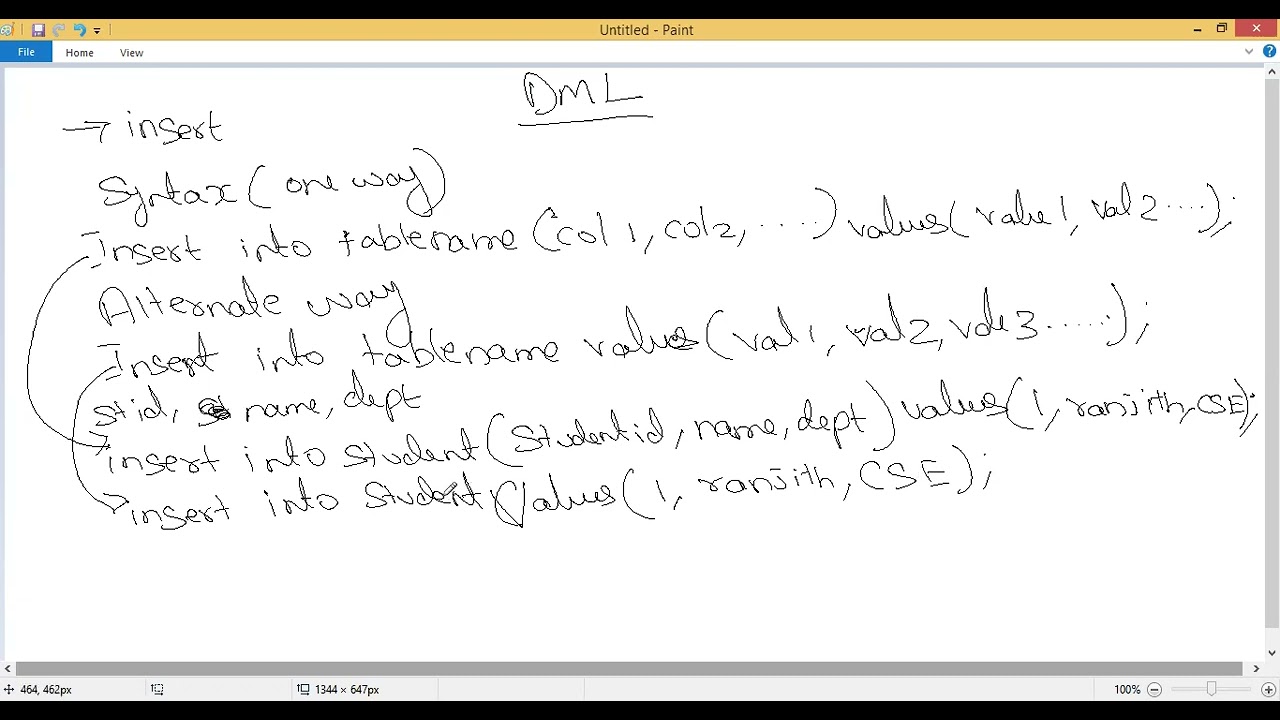 Untitled - Paint
File Home View
DML
→ insert
Syntax (one way)
Insert into tablename (col 1, col2, .....) values( value1, val2 ....);
Alternate way
Insert into tablename values (val1, val2, val3 .....);
stid, name, dept
insert into student (Studentid, name, dept) values (1, ranjith, CSE);
insert into student values (1, ranjith, CSE);
464, 462px 1344 × 647px 100%